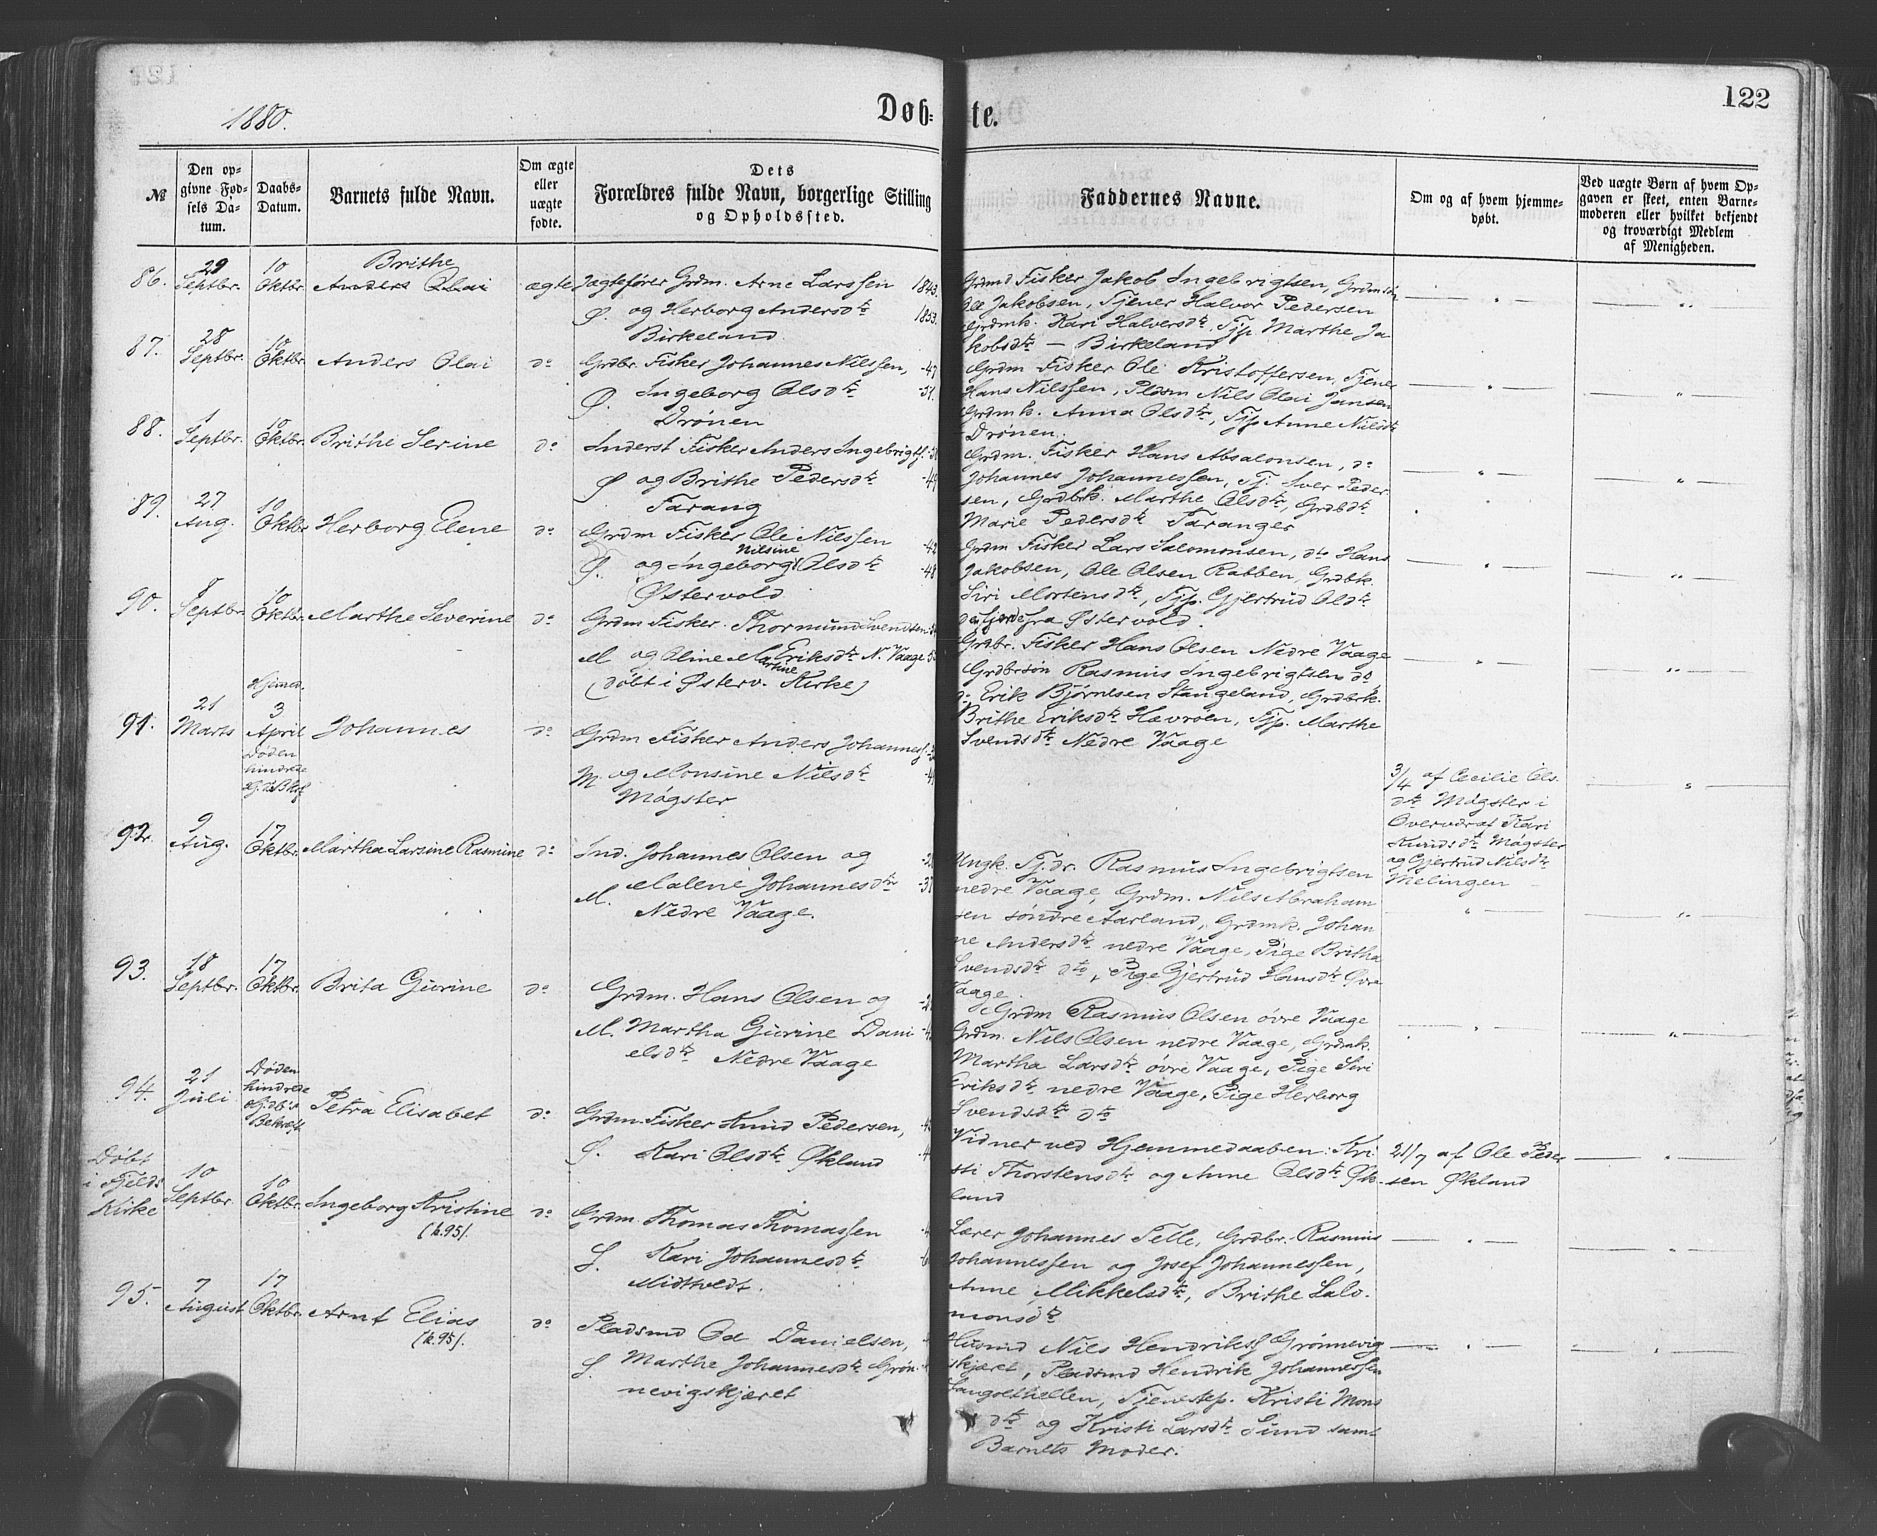 1880.
Døbte.
122
№
Den opgivne Fødsels Datum.
Daabs-Datum.
Barnets fulde Navn.
Om ægte eller uægte fødte.
Dets Forældres fulde Navn, borgerlige Stilling og Opholdssted.
Faddernes Navne.
Om og af hvem hjemmedøbt.
Ved uægte Børn af hvem Opgaven er skeet, enten Barnemoderen eller hvilket bekjendt og troværdigt Medlem af Menigheden.
86. 29 Septbr. 10 Oktbr. Brithe Anders Olai ægte
Jægtefører Grdm. Arne Larssen 1843.
Ø. og Herborg Andersdtr 1853.
Birkeland
Grdmd Fisker Jakob Ingebrigtsen, Grdmsøn
Ole Jakobsen, Tjener Halvor Pedersen
Grdmk. Kari Halversdtr, Tjp. Marthe Ja
kobsdtr — Birkeland
87. 28 Septbr. 10 Oktbr. Anders Olai do
Grdbr. Fisker Johannes Nilssen, -47
Ø. Ingeborg Olsdtr -51.
Drönen
Grdm Fisker Ole Kristoffersen, Tjener
Hans Nilssen, Pldsm Nils Olai Jansen
Grdmk. Anna Olsdtr, Tjp Anne Nilsdtr
Drönen.
88. 1 Septbr. 10 Oktbr. Brithe Serine do
Inderst Fisker Anders Ingebrigts.
Ø og Brithe Pedersdtr -49
Tarang
Grdm. Fisker Hans Absalonsen, do
Johannes Johannessen, Tj. Iver Peder
sen, Grdbk. Marthe Olsdtr, Grdbdtr
Marie Pedersdtr Taranger
89. 27 Aug. 10 Oktbr Herborg Elene do
Grdm Fisker Ole Nilssen -42
Ø. og Ingeborg Nilsine Olsdtr -48
Østervold
Grdm Fisker Lars Salomonsen, dto Hans
Jakobsen, Ole Olsen Rabben, Grdbk.
Siri Mortensdtr, Tjp. Gjertrud Olsdtr
fra Østervold.
90. 8 Septbr. 10 Oktbr. Marthe Severine do
Grdm Fisker. Thormund Svendsen
M og Oline Martine Eriksdtr N. Vaage
(döbt i Østerv. Kirke)
Grdbr. Fisker Hans Olsen Nedre Vaage
Grdbrsön Rasmus Ingebrigtsen do,
do Erik Björnesen Stangeland, Grdbrk.
Brithe Eriksdtr Hævröen, Tjp. Marthe
Svendsdtr Nedre Vaage
91. 21 Marts Hjemed. 3 April Döden hindrede Johannes do
Grdm Fisker Anders Johannes
M. og Monsine Nilsdtr
Mögster
3/4 af Cecilie Ols
dtr Mögster i
Overvær af Kari
Knudsdtr Mögster
og Gjertrud Nilsdtr
Melingen
92. 9 Aug. 17 Oktbr. Martha Larsine Rasmine do
Ind. Johannes Olsen og
M. Malene Johannesdtr
Nedre Vaage.
Ungk. Tj.dr. Rasmus Ingebrigtsen
nedre Vaage, Grdm. Nils Abraham
sen söndre Aarland, Grdmk. Johan
ne Andersdtr nedre Vaage, Pige Britha
Svendsdtr dto, Pige Gjertrud Hansdtr Øvre
Vaage.
93. 18 Septbr. 17 Oktbr. Brita Gurine do
Grdm. Hans Olsen og
M. Martha Gurine Dani
elsdtr Nedre Vaage
Grdm Rasmus Olsen övre Vaage
Grdm. Nils Olsen nedre Vaage, Grdmk.
Martha Larsdtr övre Vaage, Pige Siri
Eriksdtr nedre Vaage, Pige Herborg
Svendsdtr dto
94. 21 Juli Döden hindrede Bekræft. Petra Elisabet do
Grdm Fisker Knud Pedersen,
S. Kari Olsdtr Økland
Vidner ved Hjemmedaaben: Kri
sti Thorstensdtr og Anne Olsdtr Øk-
land
21/7 af Ole Peder
sen Økland
Döbt i Fjelds Kirke 10 Septbr. 10 Oktbr. Ingeborg Kristine do
(k.95).
Grdm. Thomas Thomassen
S. Kari Johannesdtr
Midtvedt.
Lærer Johannes Telle, Grdbr. Rasmus
Johannessen og Josef Johannessen,
Anne Mikkelsdtr, Brithe Salo-
monsdtr
95. 7 August 17 Oktbr. Arnt Elias do
(k.95).
Pladsmd Od Danielsen,
S. Marthe Johannesdtr Grön-
nevigskjæret
Husmd Nils Hendriks Grönnevig
skjæret, Pladsmd Hendrik Johannessen
Langothellen, Tjenestep. Kristi Mons
dtr og Kristi Larsdtr Sund samt
Barnets Moder.